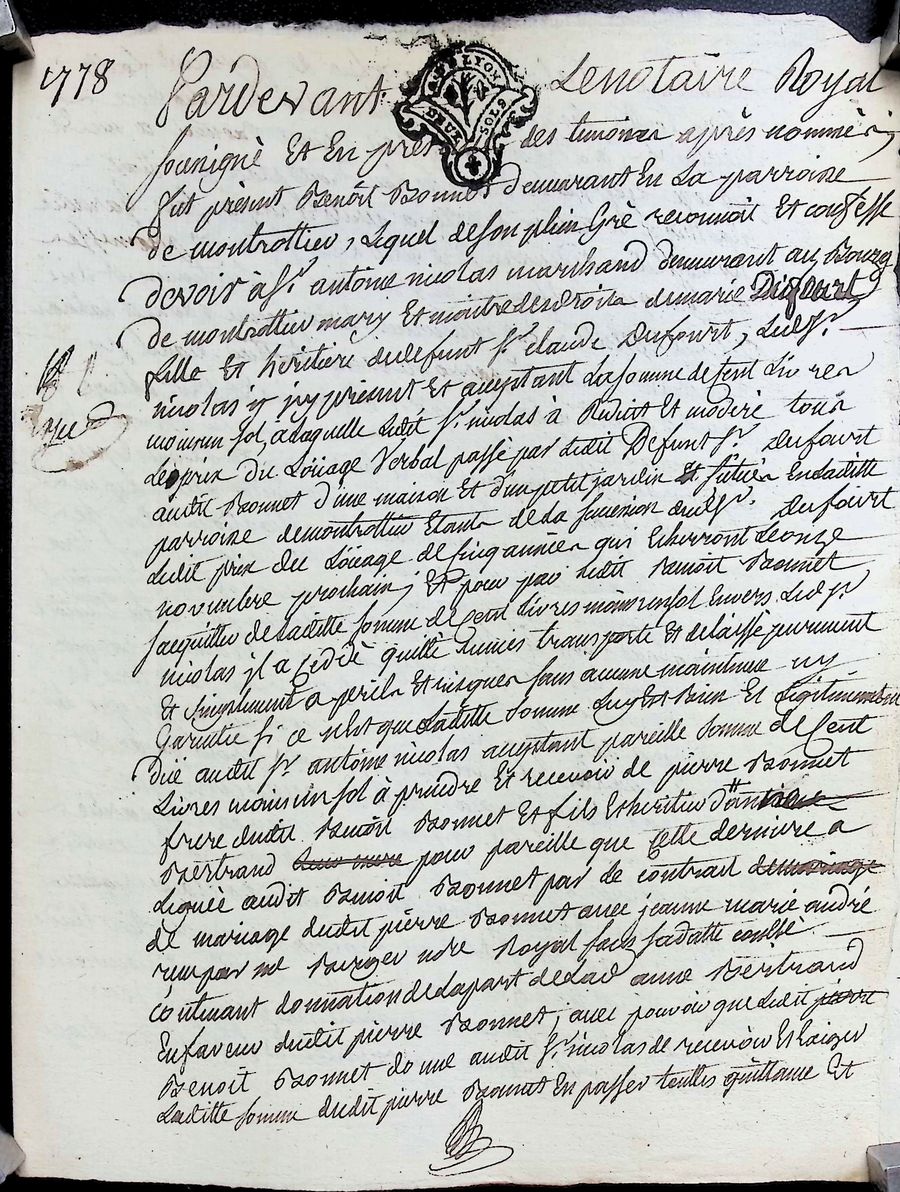 1778
Pardevant Le notaire Royal
G. DE LYON
DEUX SOLS
soussigné Et En presence des temoins après nommés
fut présent Benoit Bonnet demeurant En La parroisse
de montrottier, Lequel de son plein Gré reconnoit Et confesse
devoir à Sr. antoine nicolas marchand demeurant au Bourg
de montrottier mary Et maitre des droits de marie Dufourt
fille Et heritière du defunt Sr. claude Dufourt, Ledt. Sr.
nicolas jcy présent Et acceptant La somme de Cent Livres
moins un sol, à Laquelle Ledit Sr. nicolas à Reduit Et moderé tous
Les prix du Loüage Verbal passé par Ledit Defunt Sr. dufourt
audit Bonnet d'une maison Et d'un petit jardin Et situés En Laditte
parroisse de montrottier Etants de La succession dudt. Sr. dufourt
Ledit prix du Loüage de cinq années qui Echerront Le onze
novembre prochain; Et pour par Ledit Benoit Bonnet
s'acquitter de Laditte somme de Cent Livres moins un sol Envers Ledt. Sr.
nicolas jl a Cédé quitté remis transporté Et delaissé purement
Et simplement a perils Et risques sans aucune maintenue ny
Garantie si ce n'est que Laditte Somme Luy Est Bien Et Legitimement
Düe audit Sr. antoine nicolas acceptant pareille Somme de Cent
Livres moins un sol à prendre Et recevoir de pierre Bonnet
frere dudit Benoit Bonnet Et fils Et heritier d'anne
Bertrand Leur mere pour pareille que Cette derniere a
Leguée audit Benoit Bonnet par Le contrait de mariage
de mariage dudit pierre Bonnet avec jeanne marie andré
reçu par me Berger nore Royal sous sa datte conllé
contenant donnation de La part de Lad anne Bertrand
En faveur dudit pierre Bonnet; avec pouvoir que Ledit pierre
Benoit Bonnet donne audit Sr. nicolas de recevoir Et Exiger
Laditte somme dudit pierre Bonnet En passer touttes quittance Et